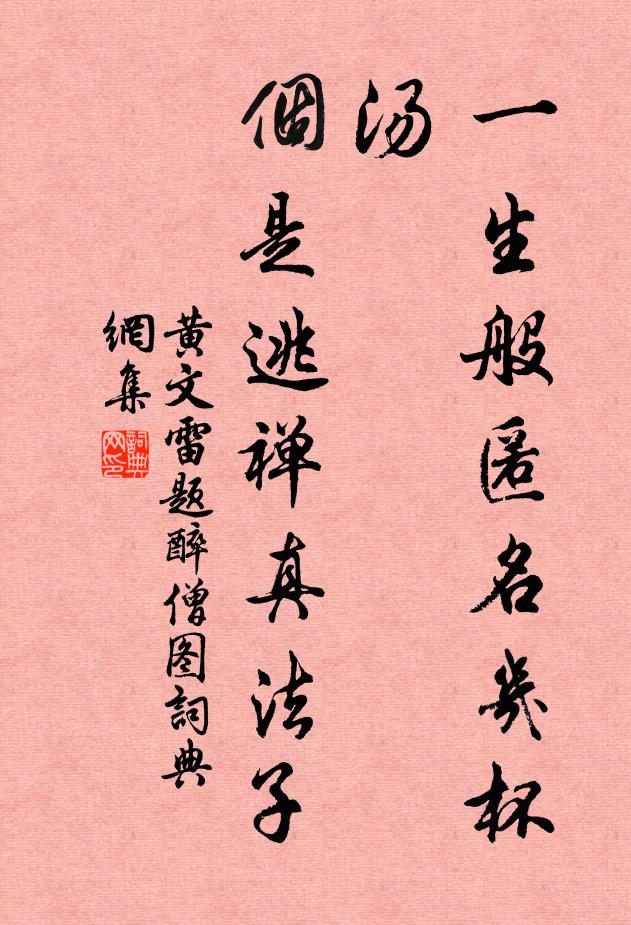 一生般匿名幾杯
汤
個是逃禅真法子
黄文雷題醉僧图詞典
網集
詞典网印